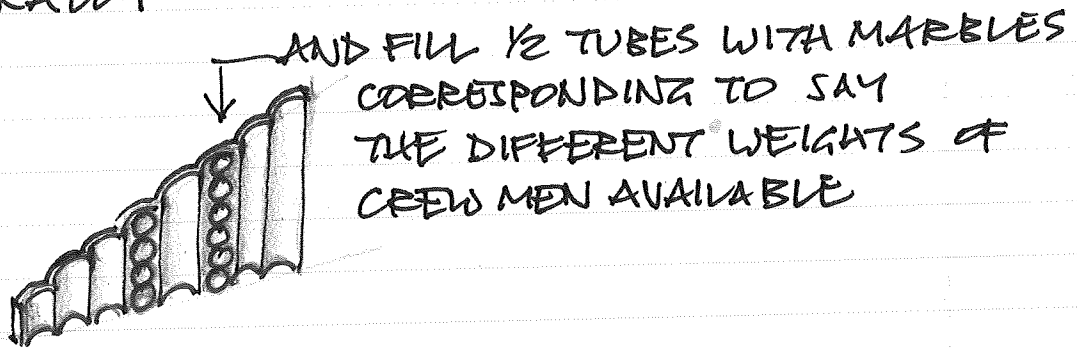 AND FILL 1/2 TUBES WITH MARBLES
CORRESPONDING TO SAY
THE DIFFERENT WEIGHTS OF
CREW MEN AVAILABLE